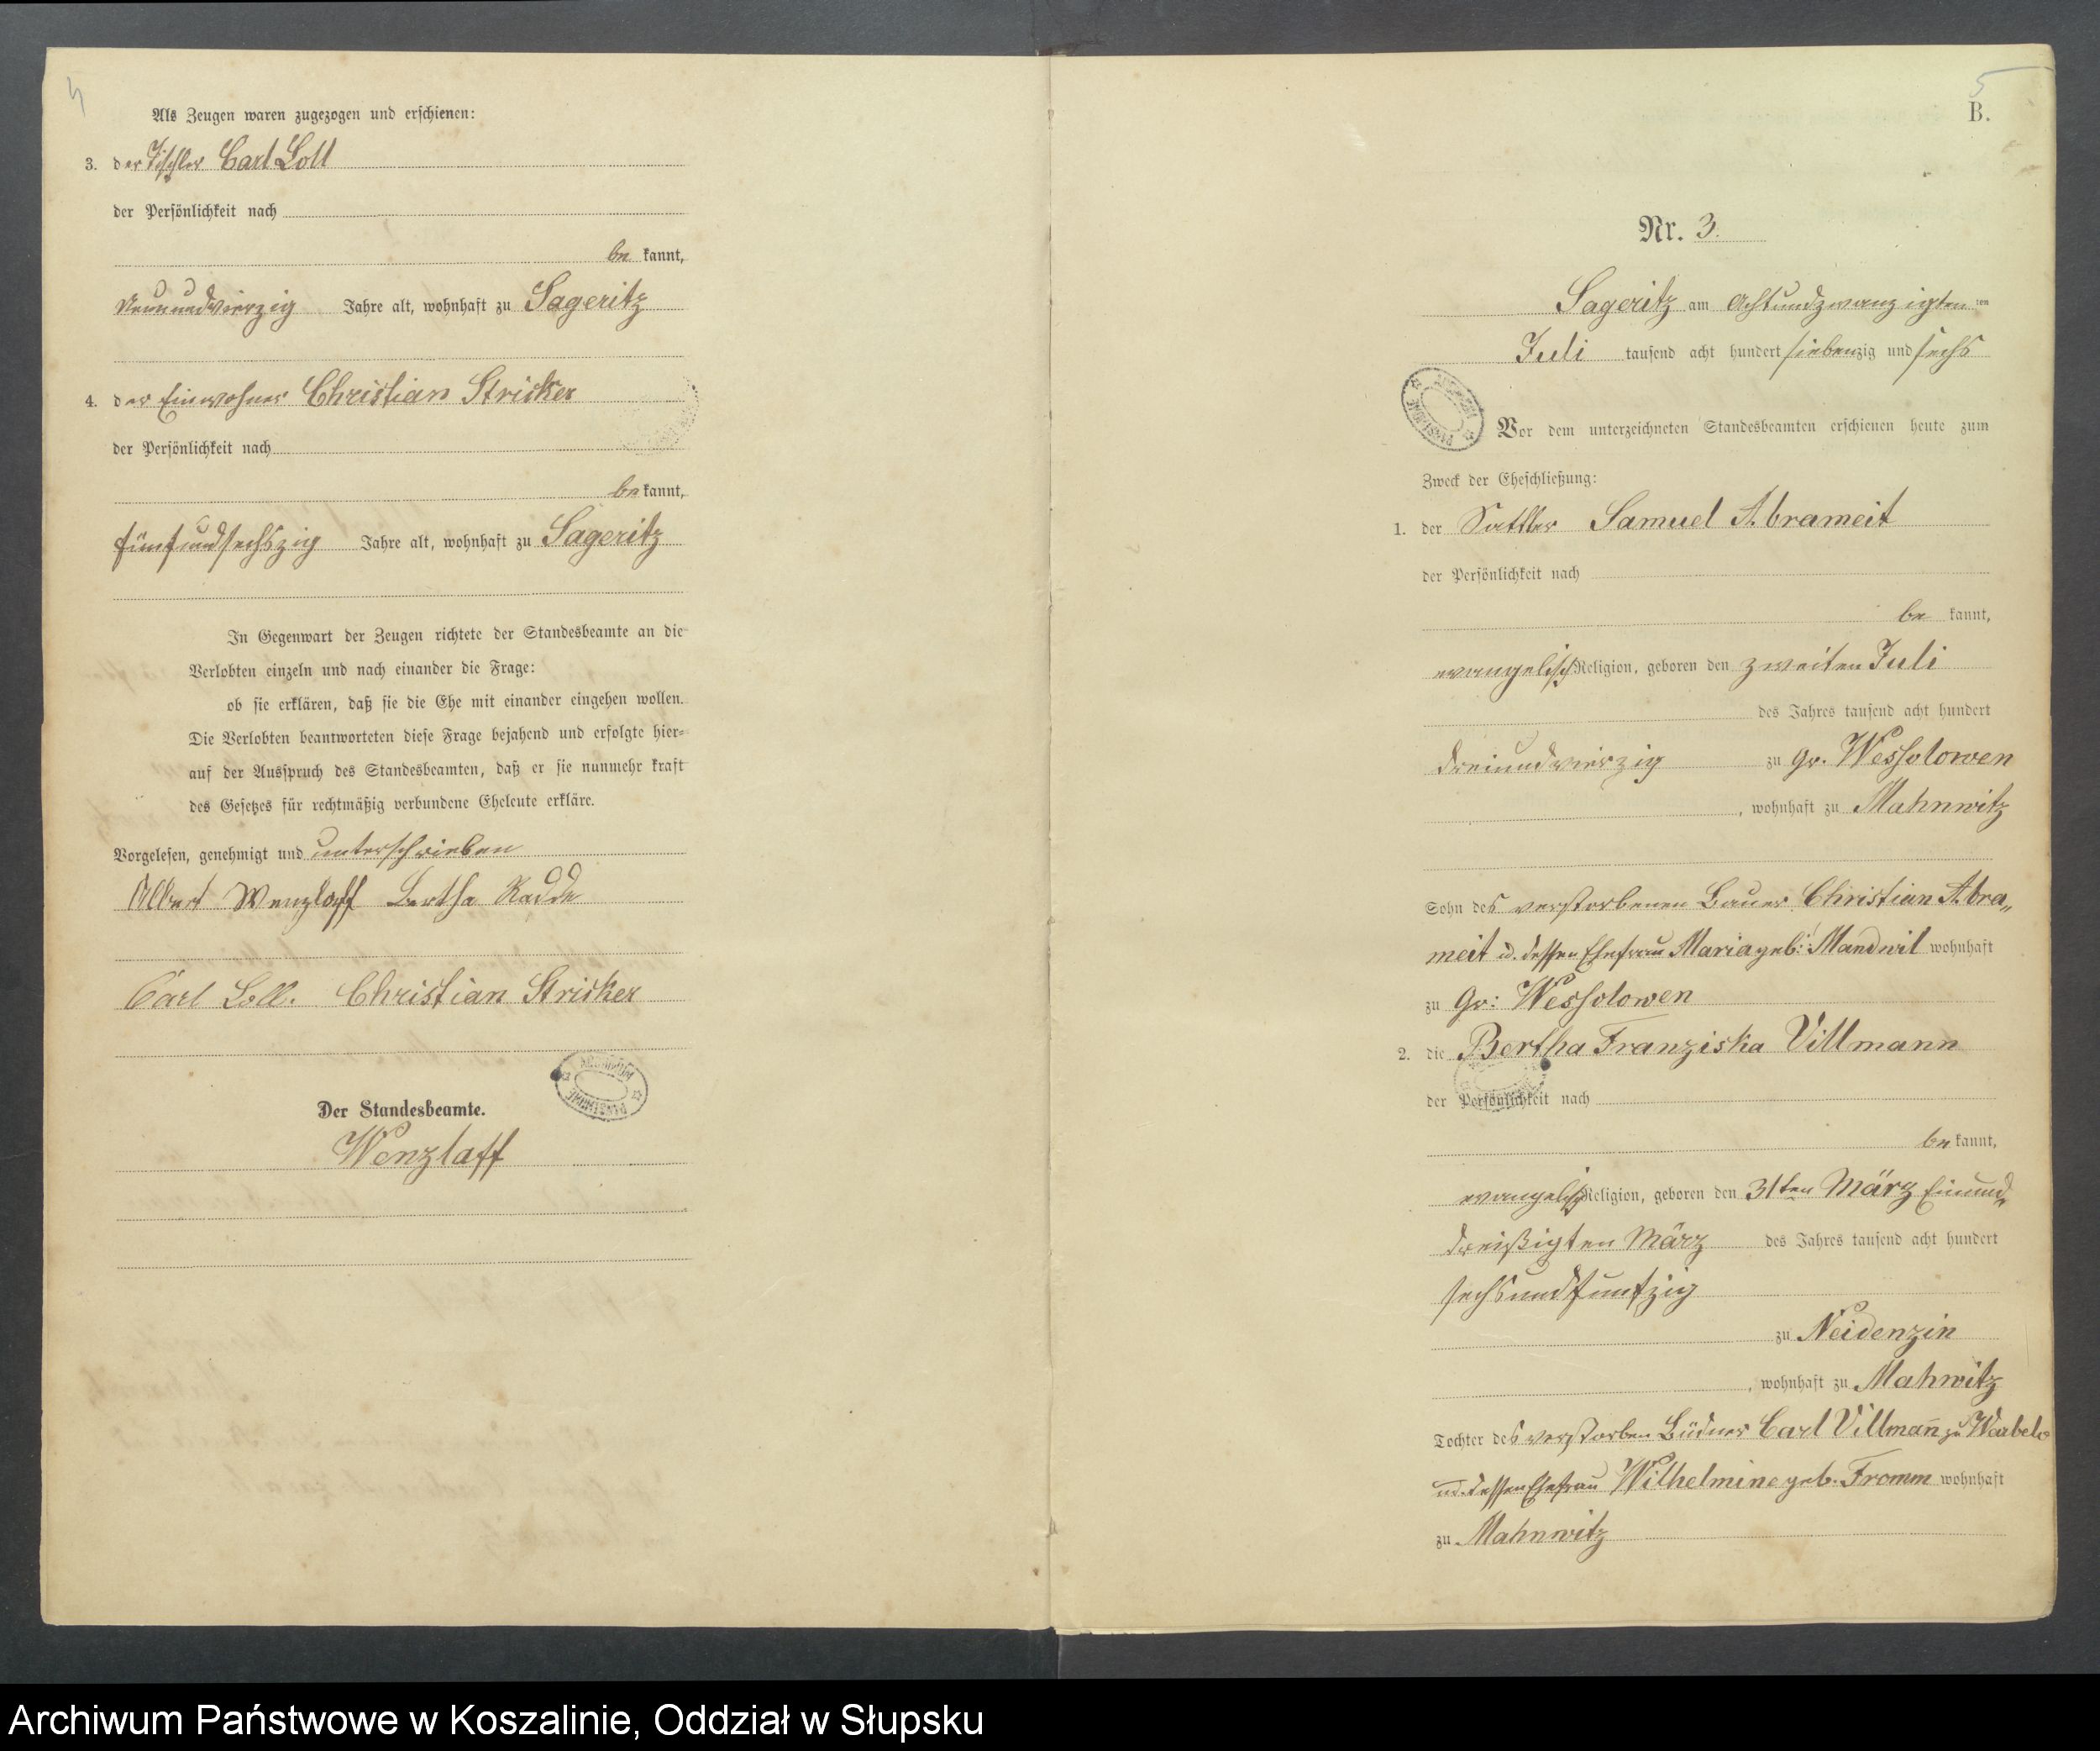 4
Als Zeugen waren zugezogen und erschienen:
3. der Tischler Carl Loll
der Persönlichkeit nach
be kannt,
neunundvierzig Jahre alt, wohnhaft zu Sageritz
4. der Einwohner Christian Stricker
der Persönlichkeit nach
be kannt,
fünfundsechszig Jahre alt, wohnhaft zu Sageritz
In Gegenwart der Zeugen richtete der Standesbeamte an die
Verlobten einzeln und nach einander die Frage:
ob sie erklären, daß sie die Ehe mit einander eingehen wollen.
Die Verlobten beantworteten diese Frage bejahend und erfolgte hier-
auf der Ausspruch des Standesbeamten, daß er sie nunmehr kraft
des Gesetzes für rechtmäßig verbundene Eheleute erkläre.
Vorgelesen, genehmigt und unterschrieben
Albert Wenzlaff Bertha Radde
Carl Loll. Christian Stricker
Der Standesbeamte.
Wenzlaff
5
B.
Nr. 3.
Sageritz am Achtundzwanzigten ten
Juli tausend acht hundert siebenzig und sechs
Vor dem unterzeichneten Standesbeamten erschienen heute zum
Zweck der Eheschließung:
1. der Sattler Samuel Abrameit
der Persönlichkeit nach
be kannt,
evangelisch Religion, geboren den zweiten Juli
des Jahres tausend acht hundert
dreiundvierzig zu Gr. Wessolowen
, wohnhaft zu Mahnwitz
Sohn des verstorbenen Bauer Christian Abra„
meit u. dessen Ehefrau Maria geb: Mandwil wohnhaft
zu Gr: Wessolowen
2. die Bertha Franziska Villmann
der Persönlichkeit nach
be kannt,
evangelisch Religion, geboren den 31ten März Einund„
dreißigten März des Jahres tausend acht hundert
sechsundfunfzig
zu Neidenzin
, wohnhaft zu Mahwitz
Tochter des verstorben Büdner Carl Villmañ zu Warbelo
u. dessen Ehefrau Wilhelmine geb. Fromm wohnhaft
zu Mahnwitz
Archiwum Państwowe w Koszalinie, Oddział w Słupsku